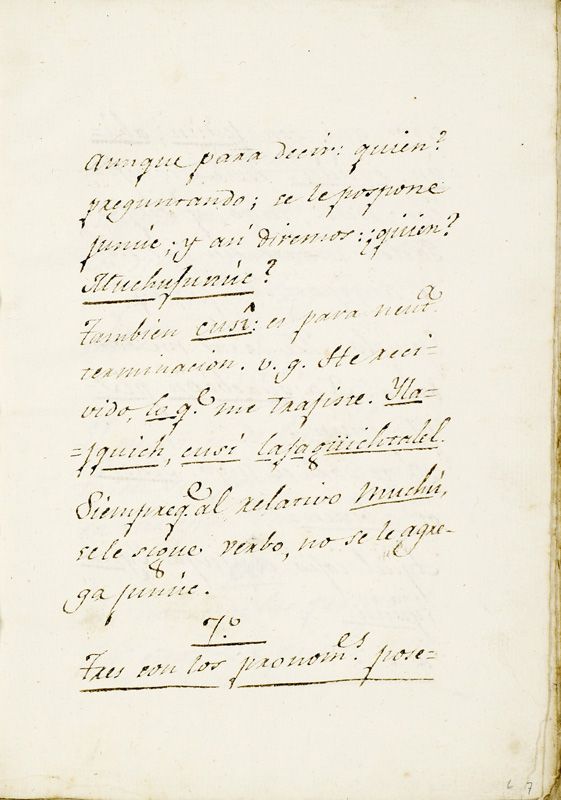 Aunque para decir: quien?
preguntando; se le pospone
junúc; y asi diremos: ¿quien?
Muchujunúc?
Tambien cusi: es para neutᵃ.
terminacion. v. g. He reci-
vido, lo qᵉ me trajiste. Yla-
=jquich, cusi lajaqüichtolel.
Siempre qᵉ al relativo muchú,
se le sigue verbo, no se le agre-
ga junúc.
7.º
Tres son los pronomᵉˢ. pose=